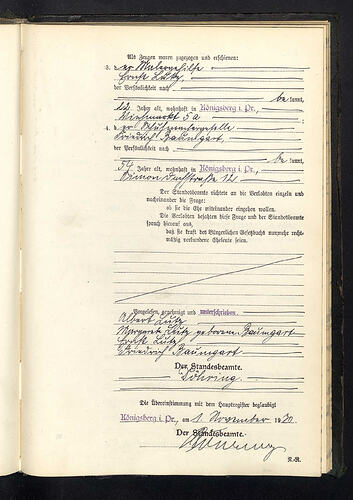 Als Zeugen waren zugezogen und erschienen:
3. der Malergehilfe
Ernst Lutz
der Persönlichkeit nach
be kannt,
22 Jahre alt, wohnhaft in Königsberg i. Pr.,
Viehmarkt 5a
4. der
Friedrich Baumgart
der Persönlichkeit nach
be kannt,
54 Jahre alt, wohnhaft in Königsberg i. Pr.,
Simon-Dachstraße 12
Der Standesbeamte richtete an die Verlobten einzeln und
nacheinander die Frage:
ob sie die Ehe miteinander eingehen wollen.
Die Verlobten bejahten diese Frage und der Standesbeamte
sprach hierauf aus,
daß sie kraft des Bürgerlichen Gesetzbuchs nunmehr recht-
mäßig verbundene Eheleute seien.
Vorgelesen, genehmigt und unterschrieben.
Albert Lutz
Margaret Lutz geborene Baumgart
Ernst Lutz
Friedrich Baumgart
Der Standesbeamte.
Löhring
Die Übereinstimmung mit dem Hauptregister beglaubigt
Königsberg i. Pr., am 1. November 1930
Der Standesbeamte.
N.-R.